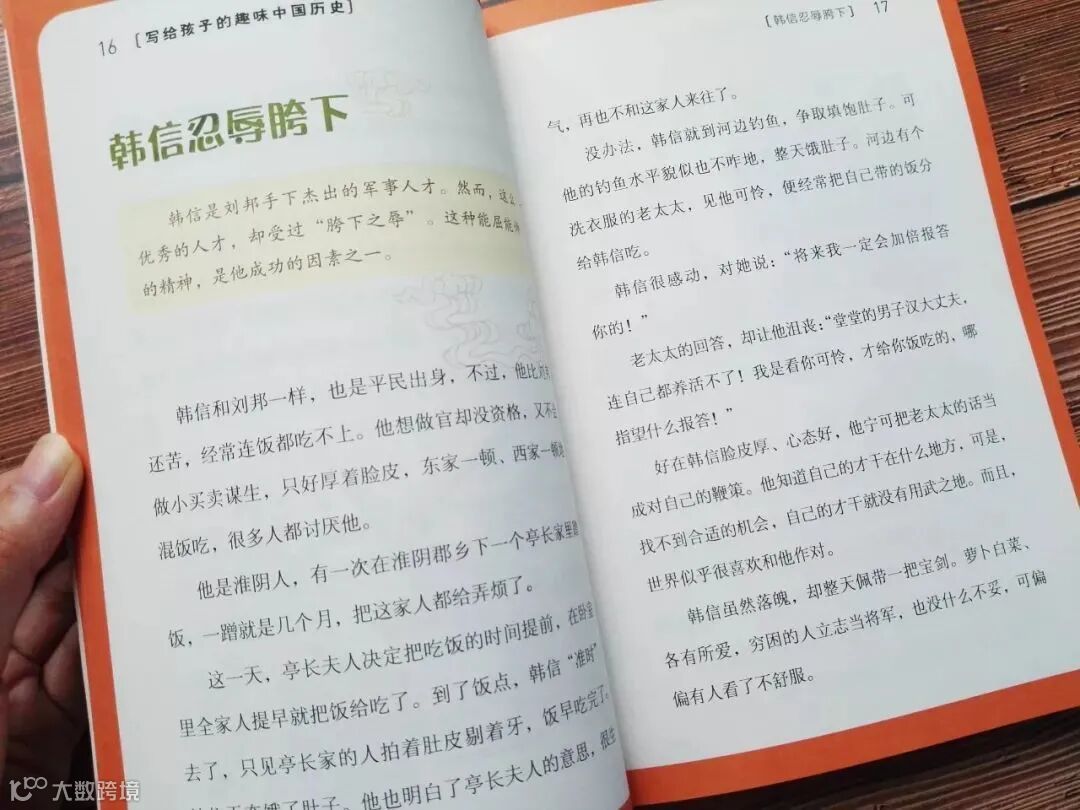 16 [写给孩子的趣味中国历史]
韩信忍辱胯下
韩信是刘邦手下杰出的军事人才。然而,这么
优秀的人才,却受过“胯下之辱”。这种能屈能
的精神,是他成功的因素之一。
韩信和刘邦一样,也是平民出身,不过,他比
还苦,经常连饭都吃不上。他想做官却没资格,又不
做小买卖谋生,只好厚着脸皮,东家一顿、西家一顿
混饭吃,很多人都讨厌他。
他是淮阴人,有一次在淮阴郡乡下一个亭长家里蹭
饭,一蹭就是几个月,把这家人都给弄烦了。
这一天,亭长夫人决定把吃饭的时间提前,在卧室
里全家人提早就把饭给吃了。到了饭点,韩信“准时”
去了,只见亭长家的人拍着肚皮剔着牙,饭早吃完了。
饿了肚子。他也明白了亭长夫人的意思,很生
[韩信忍辱胯下] 17
气,再也不和这家人来往了。
没办法,韩信就到河边钓鱼,争取填饱肚子。可
他的钓鱼水平貌似也不咋地,整天饿肚子。河边有个
洗衣服的老太太,见他可怜,便经常把自己带的饭分
给韩信吃。
韩信很感动,对她说:“将来我一定会加倍报答
你的!”
老太太的回答,却让他沮丧:“堂堂的男子汉大丈夫,
连自己都养活不了!我是看你可怜,才给你饭吃的,哪
指望什么报答!”
好在韩信脸皮厚、心态好,他宁可把老太太的话当
成对自己的鞭策。他知道自己的才干在什么地方,可是,
找不到合适的机会,自己的才干就没有用武之地。而且,
世界似乎很喜欢和他作对。
韩信虽然落魄,却整天佩带一把宝剑。萝卜白菜、
各有所爱,穷困的人立志当将军,也没什么不妥,可偏
偏有人看了不舒服。
大数跨境